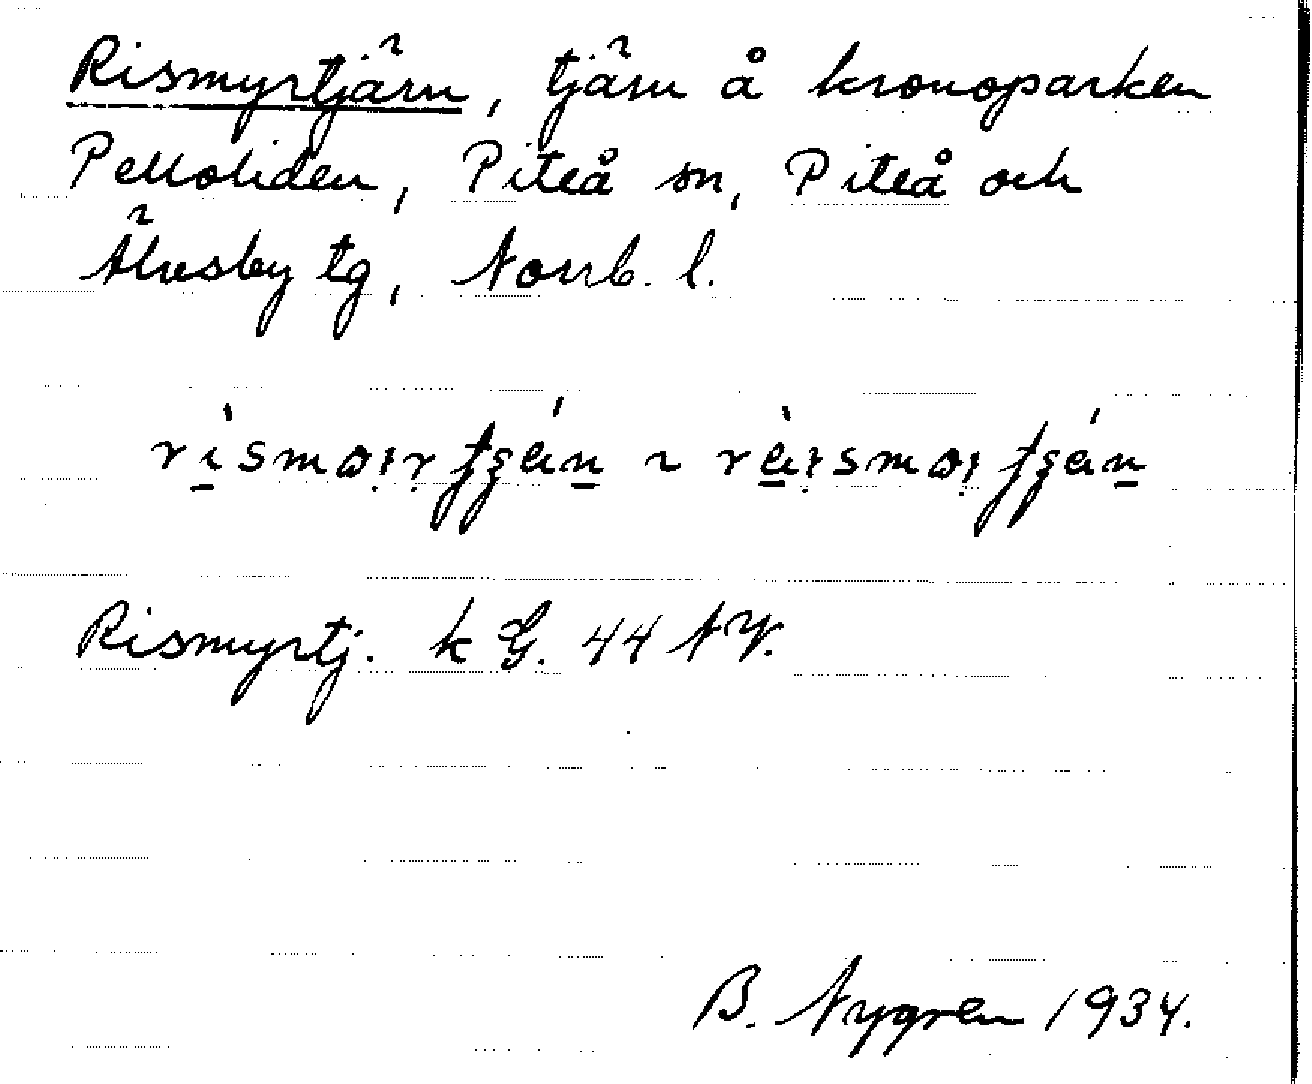 Rismyrtjärn, tjärn å kronoparken
Piteå sn, Piteå och
Älvsby tg, Norrb. l.
Rismyrtj. k G. 44 NV.
B. Nygren 1934.